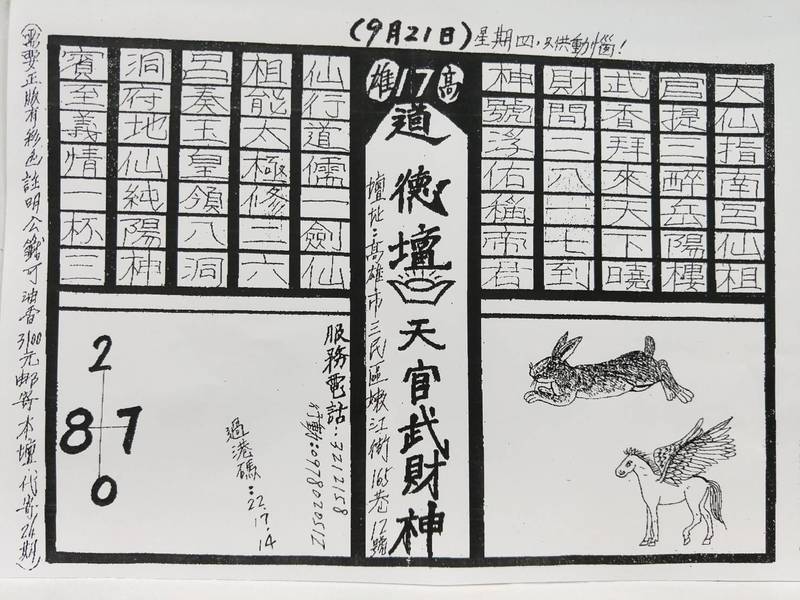 (9月21日)星期四,只供動惱!
天仙指南呂仙祖
官提三醉岳陽樓
武香拜來天下曉
財問二八二七到
神號浮佑稱帝君
高17雄
道德壇 天官武財神
壇址:高雄市三民區嫩江街165巷12號
仙行道儒一劍仙
祖能太極修二六
呂奏玉皇領八洞
洞府地仙純陽神
賓至義情一杯三
服務電話:3212158
行動:0978020512
過港碼:22.17.14
2
8 7
0
(需要正版有彩色註明公籤可油香3100元郵寄本壇代寄24期)